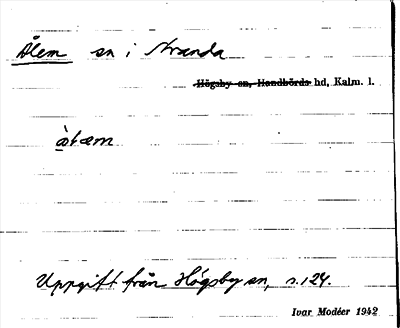 Ålem sn i Stranda
Högsby sn, Handbörds hd, Kalm. l.
Uppgift från Högsby sn, s. 124.
Ivar Modéer 1942